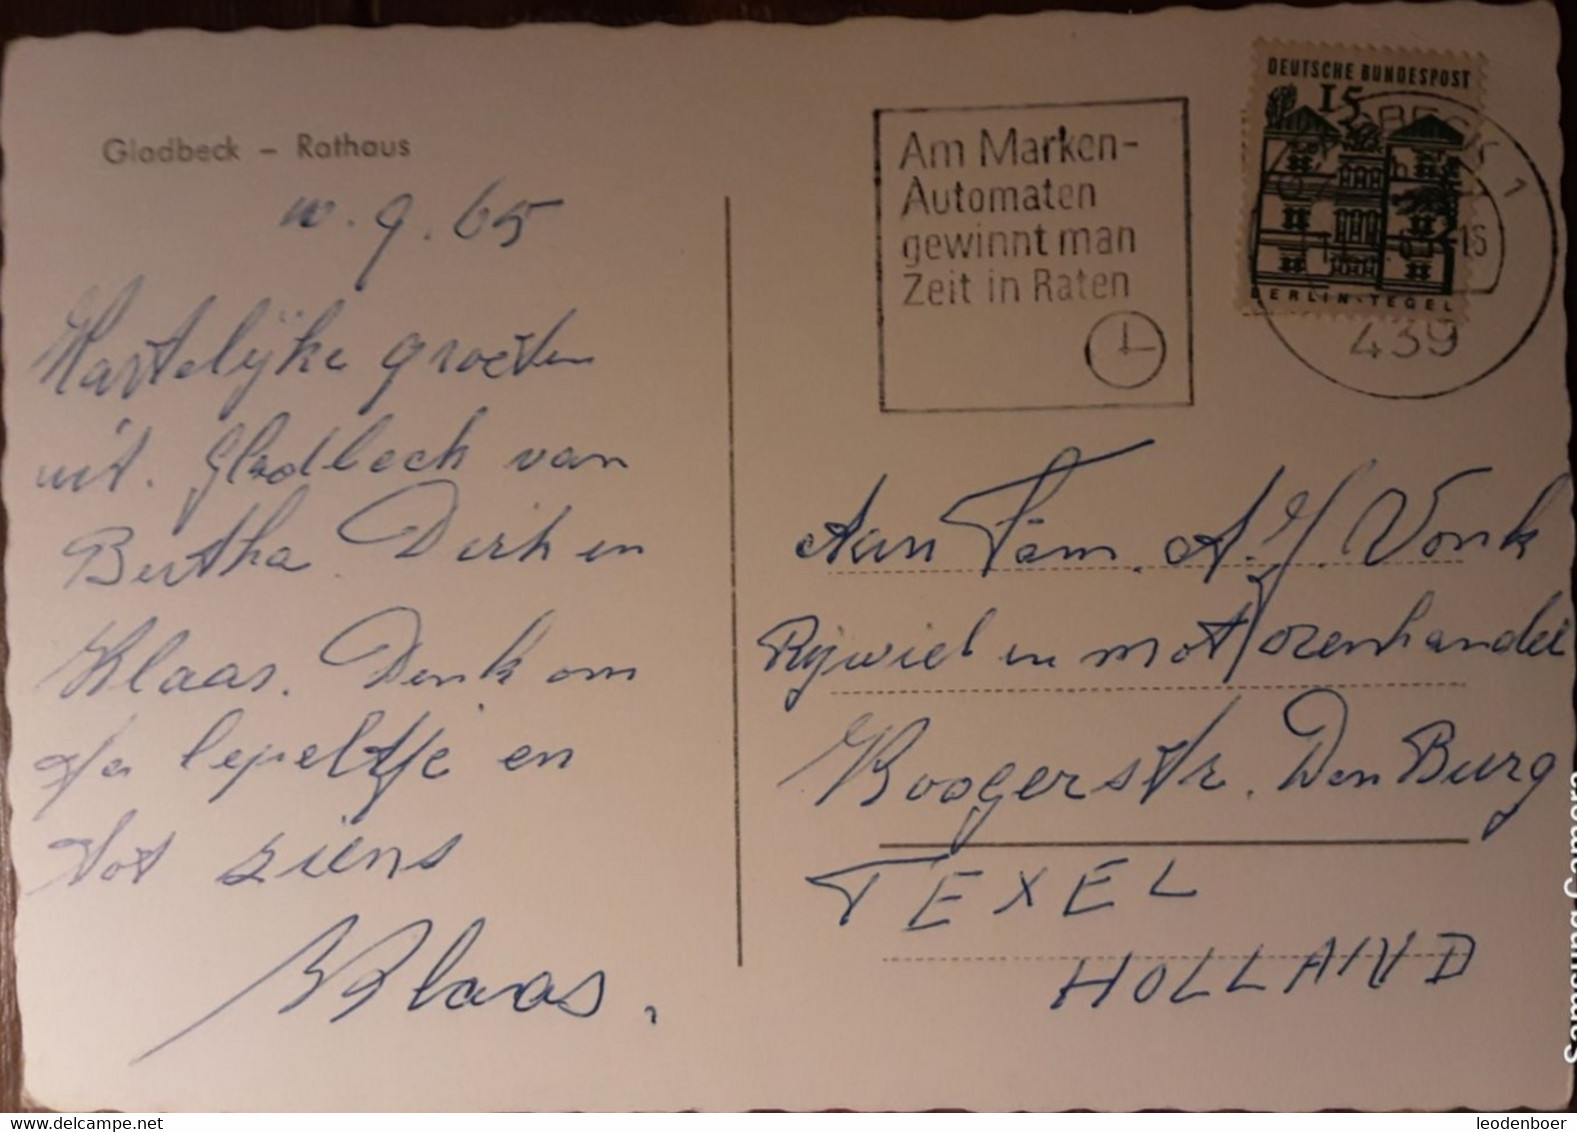 Gladbeck – Rathaus
10.9.65
Hartelijke groeten
uit. Gladbeck van
Bertha Dirk en
Klaas. Denk om
je lepeltje en
tot ziens
Klaas.
Am Marken-
Automaten
gewinnt man
Zeit in Raten
DEUTSCHE BUNDESPOST
15
BERLIN-TEGEL
439
Aan Fam. A. J. Vonk
Rijwiel en motorenhandel
Koogerstr. Den Burg
TEXEL
HOLLAND
Samsung Camera
delcampe.net
leodenboer